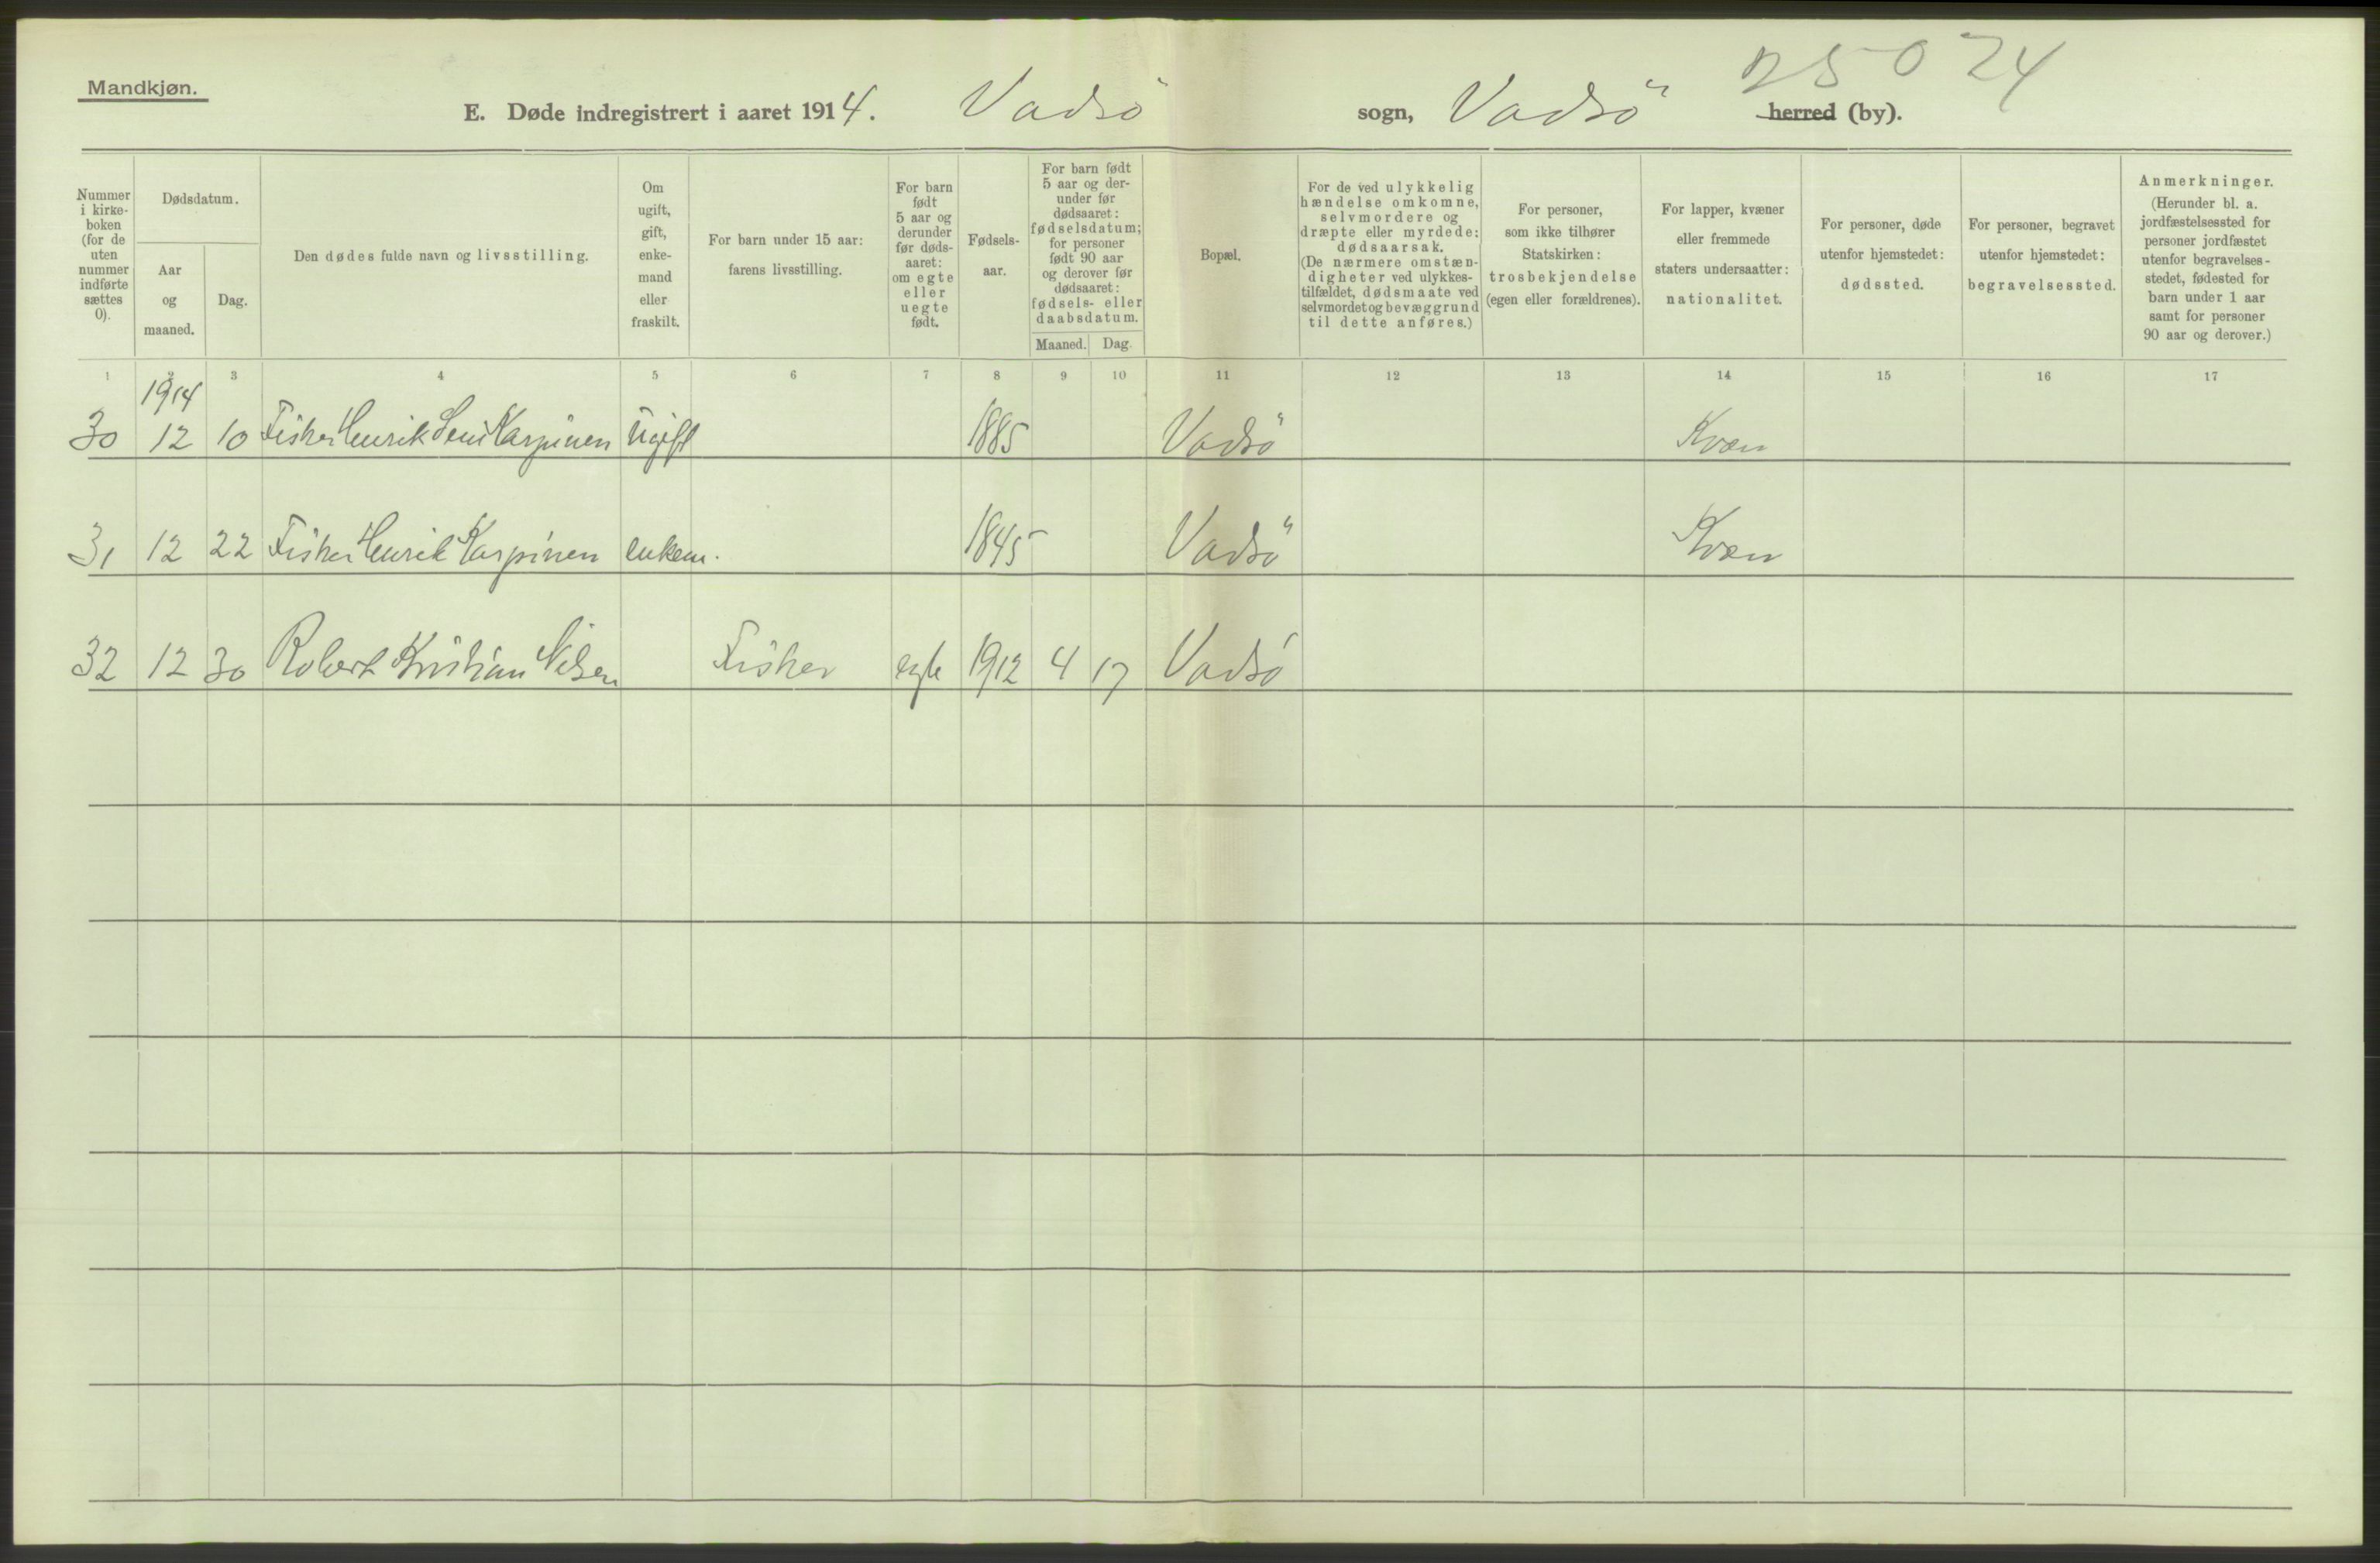 Mandkjøn.
25024
E. Døde indregistrert i aaret 1914. Vadsö sogn, Vadsö herred (by).
Nummer i kirke-boken (for de uten nummer indførte sættes 0).
Dødsdatum.
Aar og maaned.
Dag.
Den dødes fulde navn og livsstilling.
Om ugift, gift, enke-mand eller fraskilt.
For barn under 15 aar: farens livsstilling.
For barn født 5 aar og derunder før døds-aaret: om egte eller uegte født.
Fødsels-aar.
For barn født 5 aar og der-under før dødsaaret: fødselsdatum; for personer født 90 aar og derover før dødsaaret: fødsels- eller daabsdatum.
Maaned. Dag.
Bopæl.
For de ved ulykkelig hændelse omkomne, selvmordere og dræpte eller myrdede: dødsaarsak. (De nærmere omstæn-digheter ved ulykkes-tilfældet, dødsmaate ved selvmordet og bevæggrund til dette anføres.)
For personer, som ikke tilhører Statskirken: trosbekjendelse (egen eller forældrenes).
For lapper, kvæner eller fremmede staters undersaatter: nationalitet.
For personer, døde utenfor hjemstedet: dødssted.
For personer, begravet utenfor hjemstedet: begravelsessted.
Anmerkninger. (Herunder bl. a. jordfæstelsessted for personer jordfæstet utenfor begravelses-stedet, fødested for barn under 1 aar samt for personer 90 aar og derover.)
1 2 3 4 5 6 7 8 9 10 11 12 13 14 15 16 17
1914
30 12 10 Fisker Henrik Karpinen Ugift 1885 Vadsö Kvæn
31 12 22 Fisker Henrik Karpinen enkem. 1845 Vadsö Kvæn
32 12 30 Robert Kristian Nilsen Fisker egte 1912 4 17 Vadsö